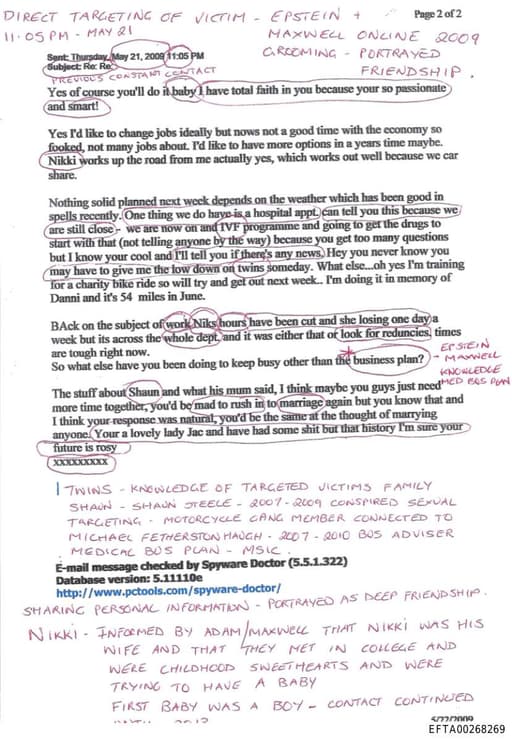 DIRECT TARGETING OF VICTIM - EPSTEIN + Page 2 of 2
11.05 PM - MAY 21 MAXWELL ONLINE 2009
GROOMING - PORTRAYED
FRIENDSHIP.
Sent: Thursday, May 21, 2009 11:05 PM
Subject: Re: Re:
PREVIOUS CONSTANT CONTACT
Yes of course you'll do it baby I have total faith in you because your so passionate
and smart!
Yes I'd like to change jobs ideally but nows not a good time with the economy so
fooked, not many jobs about. I'd like to have more options in a years time maybe.
Nikki works up the road from me actually yes, which works out well because we car
share.
Nothing solid planned next week depends on the weather which has been good in
spells recently. One thing we do have is a hospital appt, can tell you this because we
are still close - we are now on and IVF programme and going to get the drugs to
start with that (not telling anyone by the way) because you get too many questions
but I know your cool and I'll tell you if there's any news. Hey you never know you
may have to give me the low down on twins someday. What else...oh yes I'm training
for a charity bike ride so will try and get out next week.. I'm doing it in memory of
Danni and it's 54 miles in June.
BAck on the subject of work Niks hours have been cut and she losing one day a
week but its across the whole dept, and it was either that or look for reduncies, times
are tough right now.
So what else have you been doing to keep busy other than the business plan?
- EPSTEIN
MAXWELL
KNOWLEDGE
MED BUS PLAN
The stuff about Shaun and what his mum said, I think maybe you guys just need
more time together, you'd be mad to rush in to marriage again but you know that and
I think your response was natural, you'd be the same at the thought of marrying
anyone. Your a lovely lady Jac and have had some shit but that history I'm sure your
future is rosy
xxxxxxxxx
TWINS - KNOWLEDGE OF TARGETED VICTIMS FAMILY
SHAUN - SHAUN STEELE - 2007 - 2009 CONSPIRED SEXUAL
TARGETING - MOTORCYCLE GANG MEMBER CONNECTED TO
MICHAEL FETHERSTONHAUGH - 2007 - 2010 BUS ADVISER
MEDICAL BUS PLAN - MSIC.
E-mail message checked by Spyware Doctor (5.5.1.322)
Database version: 5.11110e
http://www.pctools.com/spyware-doctor/
SHARING PERSONAL INFORMATION - PORTRAYED AS DEEP FRIENDSHIP.
NIKKI - INFORMED BY ADAM/MAXWELL THAT NIKKI WAS HIS
WIFE AND THAT THEY MET IN COLLEGE AND
WERE CHILDHOOD SWEETHEARTS AND WERE
TRYING TO HAVE A BABY
FIRST BABY WAS A BOY - CONTACT CONTINUED
EFTA00268269